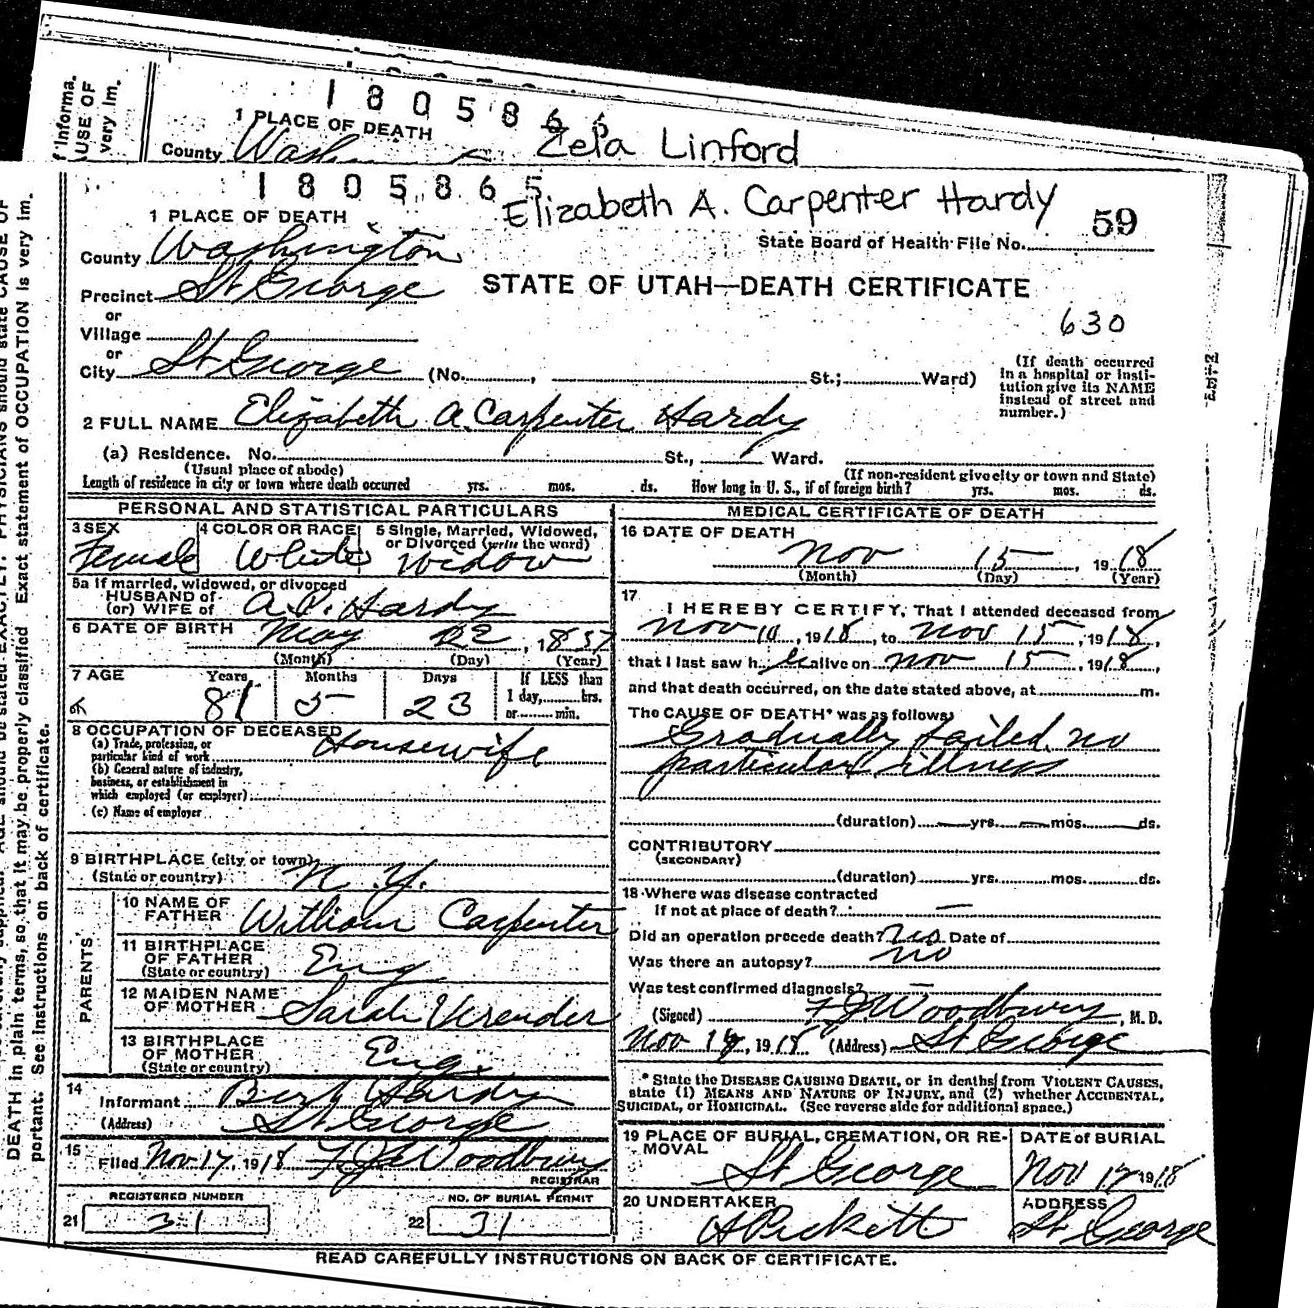 f Informa.
AUSE OF
very im.
180586
1 PLACE OF DEATH
County Wash
Zela Linford
1805865
Elizabeth A. Carpenter Hardy
59
1 PLACE OF DEATH
State Board of Health File No.
County Washington
Precinct St George
STATE OF UTAH—DEATH CERTIFICATE
630
or
Village
or
City St George (No. , St.; Ward)
(If death occurred
in a hospital or insti-
tution give its NAME
instead of street and
number.)
2 FULL NAME Elizabeth A. Carpenter Hardy
(a) Residence. No. St., Ward.
(Usual place of abode) (If non-resident give city or town and State)
Length of residence in city or town where death occurred yrs. mos. ds. How long in U. S., if of foreign birth? yrs. mos. ds.
PERSONAL AND STATISTICAL PARTICULARS
3 SEX 4 COLOR OR RACE 5 Single, Married, Widowed,
or Divorced (write the word)
Female White Widow
5a If married, widowed, or divorced
HUSBAND of
(or) WIFE of A. P. Hardy
6 DATE OF BIRTH May 22, 1837
(Month) (Day) (Year)
7 AGE Years Months Days If LESS than
1 day, hrs.
or min.
81 5 23
8 OCCUPATION OF DECEASED
(a) Trade, profession, or
particular kind of work Housewife
(b) General nature of industry,
business, or establishment in
which employed (or employer)
(c) Name of employer
9 BIRTHPLACE (city or town)
(State or country) N. Y.
PARENTS
10 NAME OF
FATHER William Carpenter
11 BIRTHPLACE
OF FATHER
(State or country) Eng
12 MAIDEN NAME
OF MOTHER Sarah Verender
13 BIRTHPLACE
OF MOTHER
(State or country) Eng.
14
Informant Bert Hardy
(Address) St George
15
Filed Nov 17, 1918 F J Woodbury
REGISTRAR
REGISTERED NUMBER NO. OF BURIAL PERMIT
21 31 22 31
MEDICAL CERTIFICATE OF DEATH
16 DATE OF DEATH
Nov 15, 1918
(Month) (Day) (Year)
17
I HEREBY CERTIFY, That I attended deceased from
Nov 10, 1918, to Nov 15, 1918,
that I last saw her alive on Nov 15, 1918,
and that death occurred, on the date stated above, at m.
The CAUSE OF DEATH* was as follows:
Gradually failed, no
particular illness
(duration) yrs. mos. ds.
CONTRIBUTORY
(SECONDARY)
(duration) yrs. mos. ds.
18 Where was disease contracted
if not at place of death? —
Did an operation precede death? no Date of
Was there an autopsy? no
Was test confirmed diagnosis?
(Signed) F J Woodbury, M. D.
Nov 16, 1918 (Address) St George
* State the DISEASE CAUSING DEATH, or in deaths from VIOLENT CAUSES,
state (1) MEANS AND NATURE OF INJURY, and (2) whether ACCIDENTAL,
SUICIDAL, or HOMICIDAL. (See reverse side for additional space.)
19 PLACE OF BURIAL, CREMATION, OR RE-
MOVAL
St George
DATE of BURIAL
Nov 17 1918
20 UNDERTAKER
A Pickett
ADDRESS
St George
READ CAREFULLY INSTRUCTIONS ON BACK OF CERTIFICATE.
PHYSICIANS should state CAUSE OF
DEATH in plain terms, so that it may be properly classified. Exact statement of OCCUPATION is very im.
portant. See instructions on back of certificate.